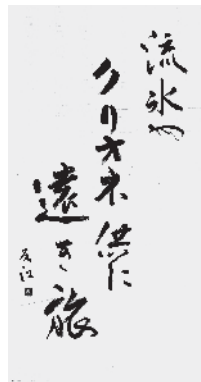 流氷や
クリオネ供に
遠き旅